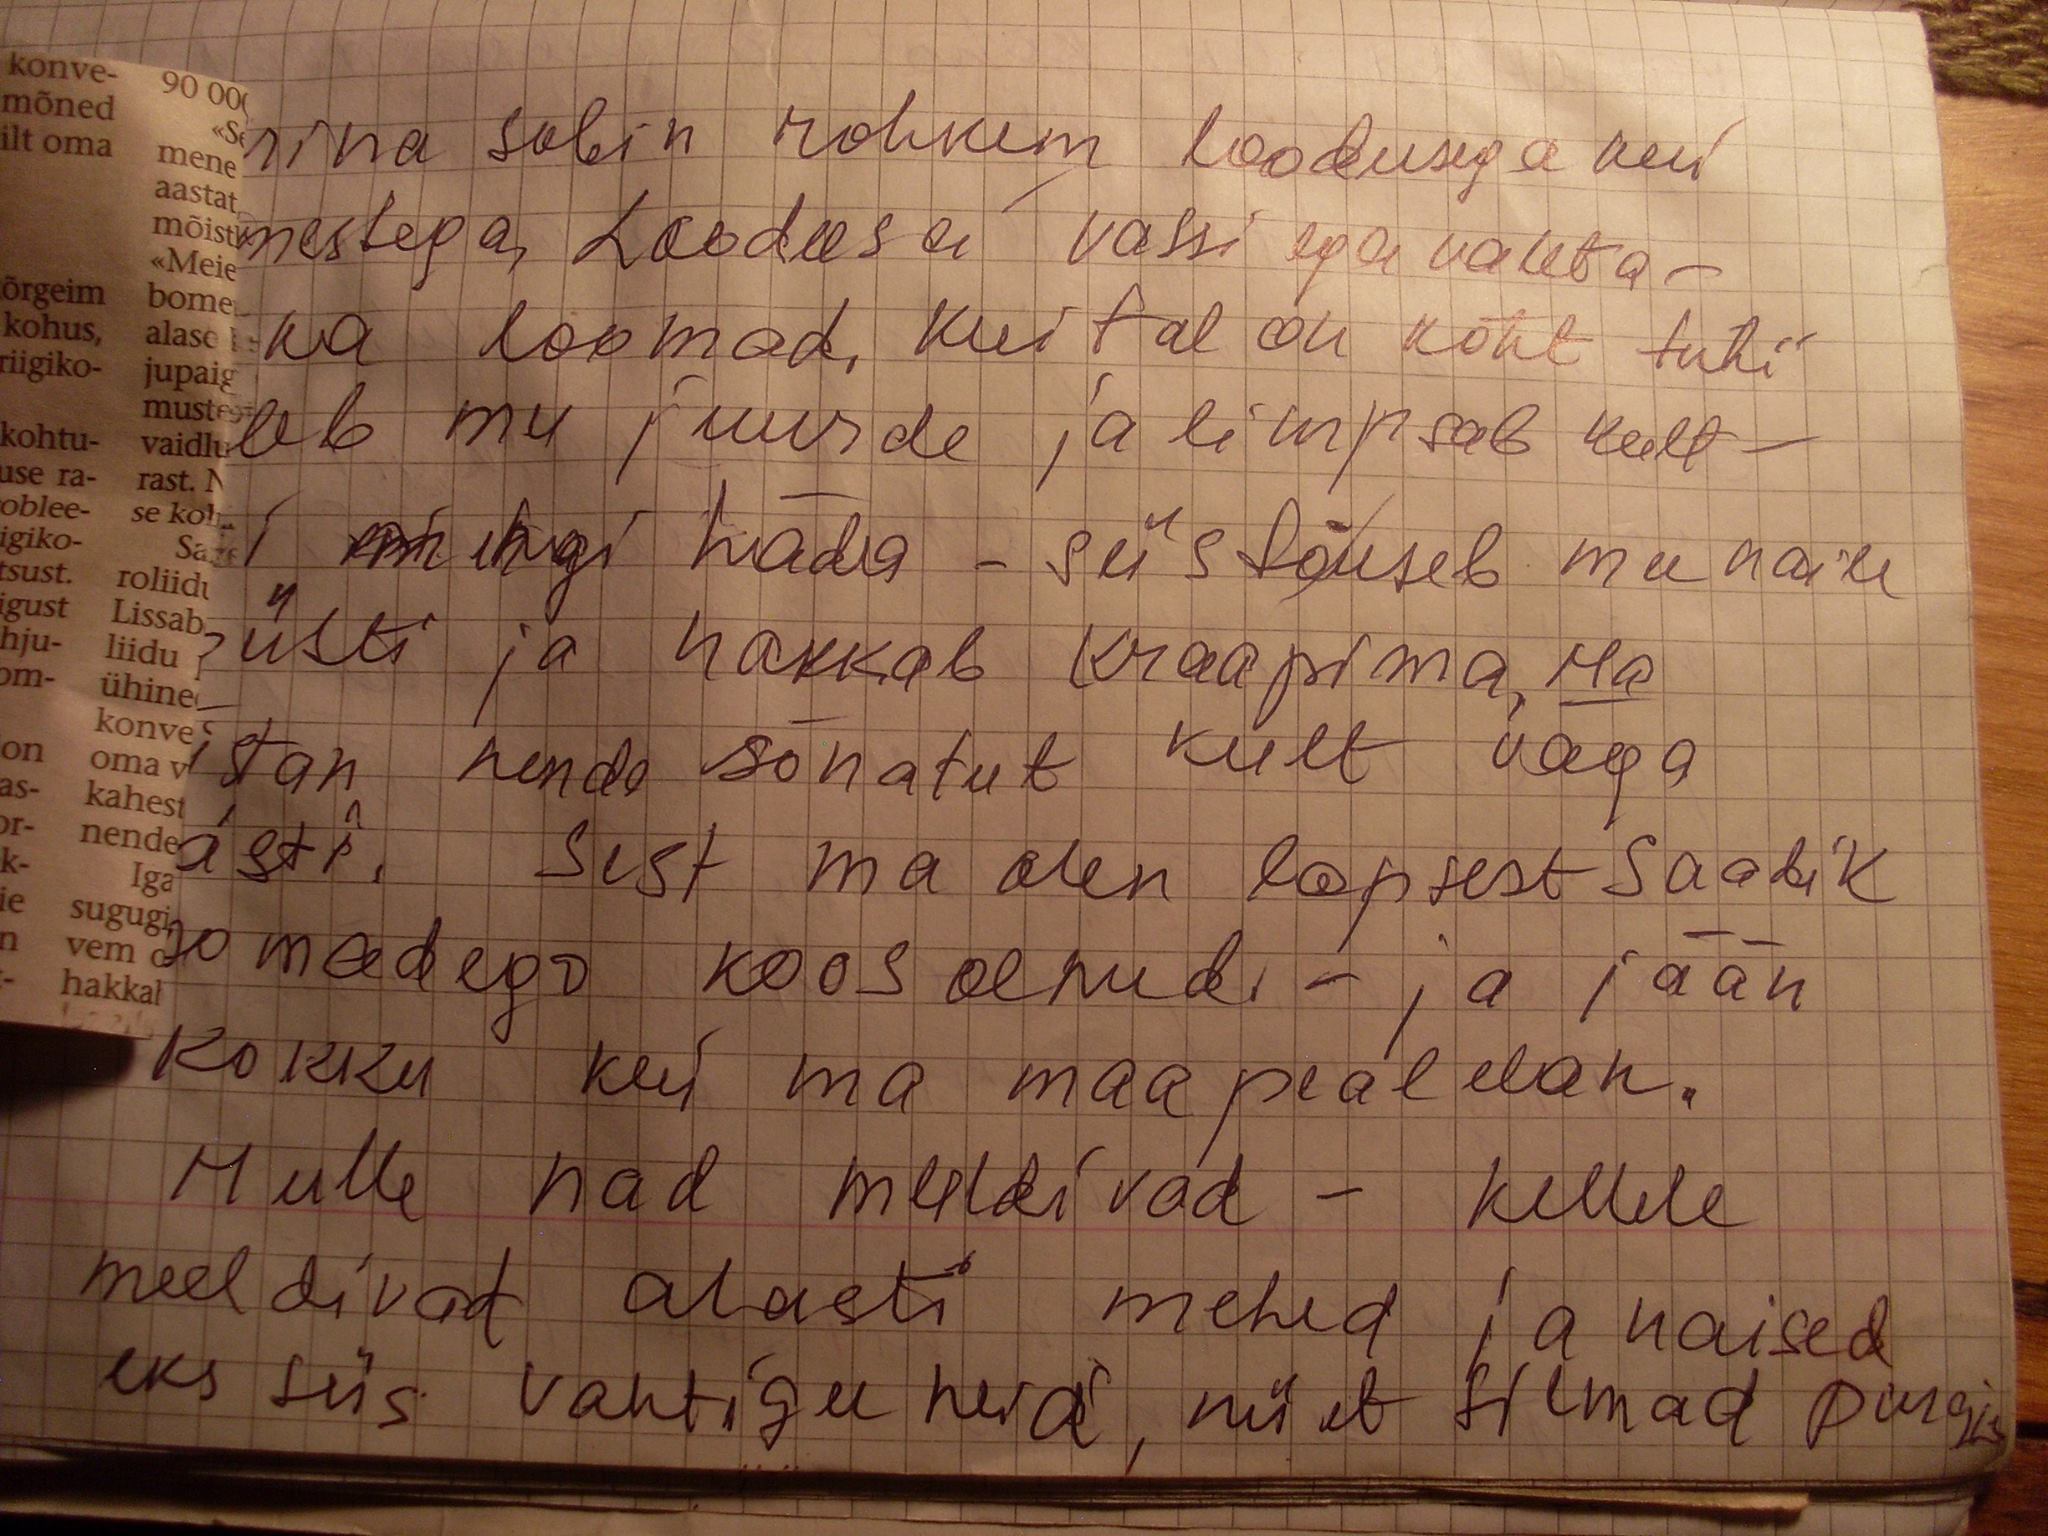 konve-
mõned
ilt oma
õrgeim
kohus,
riigiko-
kohtu-
use ra-
roblee-
igiko-
tsust.
igust
hju-
om-
ion
as-
or-
k-
ie
n
90 000
«Se
mene
aastat
mõist
«Meie
bome
alase
jupaig
muste
vaidlu
rast. N
se koh
Sa
roliidu
Lissab
liidu
ühine
konve
oma v
kahest
nende
Iga
sugugi
vem o
hakkal
mina sobin rohkem loodusega kui
mestega, Loodus ei vassi ega valeta-
ka loomad, kui tal on kõht tühi
leb mu juurde ja limpsab keelt-
i mingi häda - siis tõuseb mu naiu
püsti ja hakkab kraapima, Ma
istan nende sõnatut keelt väga
ästi. Sest ma olen lapsest saadik
omadega koos olnud. - ja jään
kokku kui ma maapeal elan.
Mulle nad meeldivad - kellele
meeldivad alasti mehed ja naised
eks siis vahtigu neid, nii et silmad